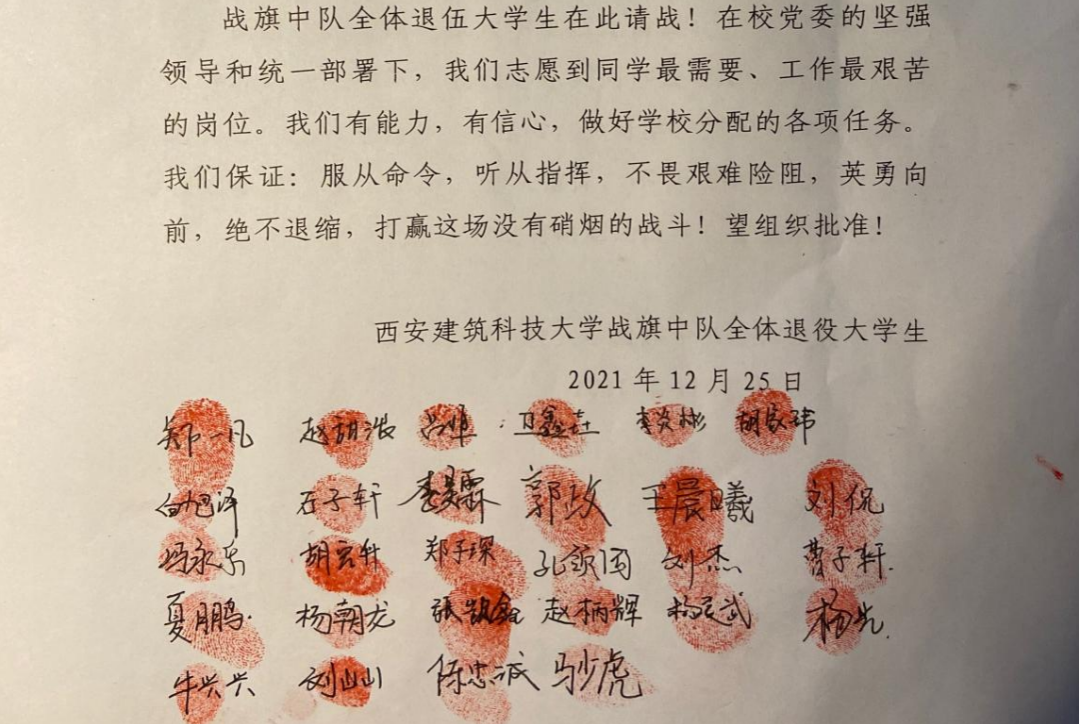 战旗中队全体退伍大学生在此请战！在校党委的坚强
领导和统一部署下，我们志愿到同学最需要、工作最艰苦
的岗位。我们有能力，有信心，做好学校分配的各项任务。
我们保证：服从命令，听从指挥，不畏艰难险阻，英勇向
前，绝不退缩，打赢这场没有硝烟的战斗！望组织批准！
西安建筑科技大学战旗中队全体退役大学生
2021 年 12 月 25 日
郑一凡 赵翊浩 李炎彬 胡家玮
白旭泽 石子轩 王晨曦 刘侃
冯永东 胡云升 郑子琛 刘杰 曹子轩
夏鹏 杨朝龙 赵柄辉 杨先
牛兴兴 刘山山 陈忠诚 马少虎